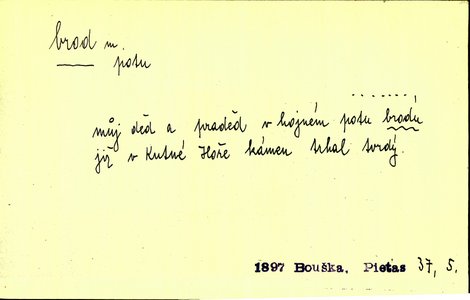 brod m.
potu
.......,
můj děd a praděd v hojném potu brodu
již v Kutné Hoře kámen trhal tvrdý.
1897 Bouška, Pietas 37, 5.